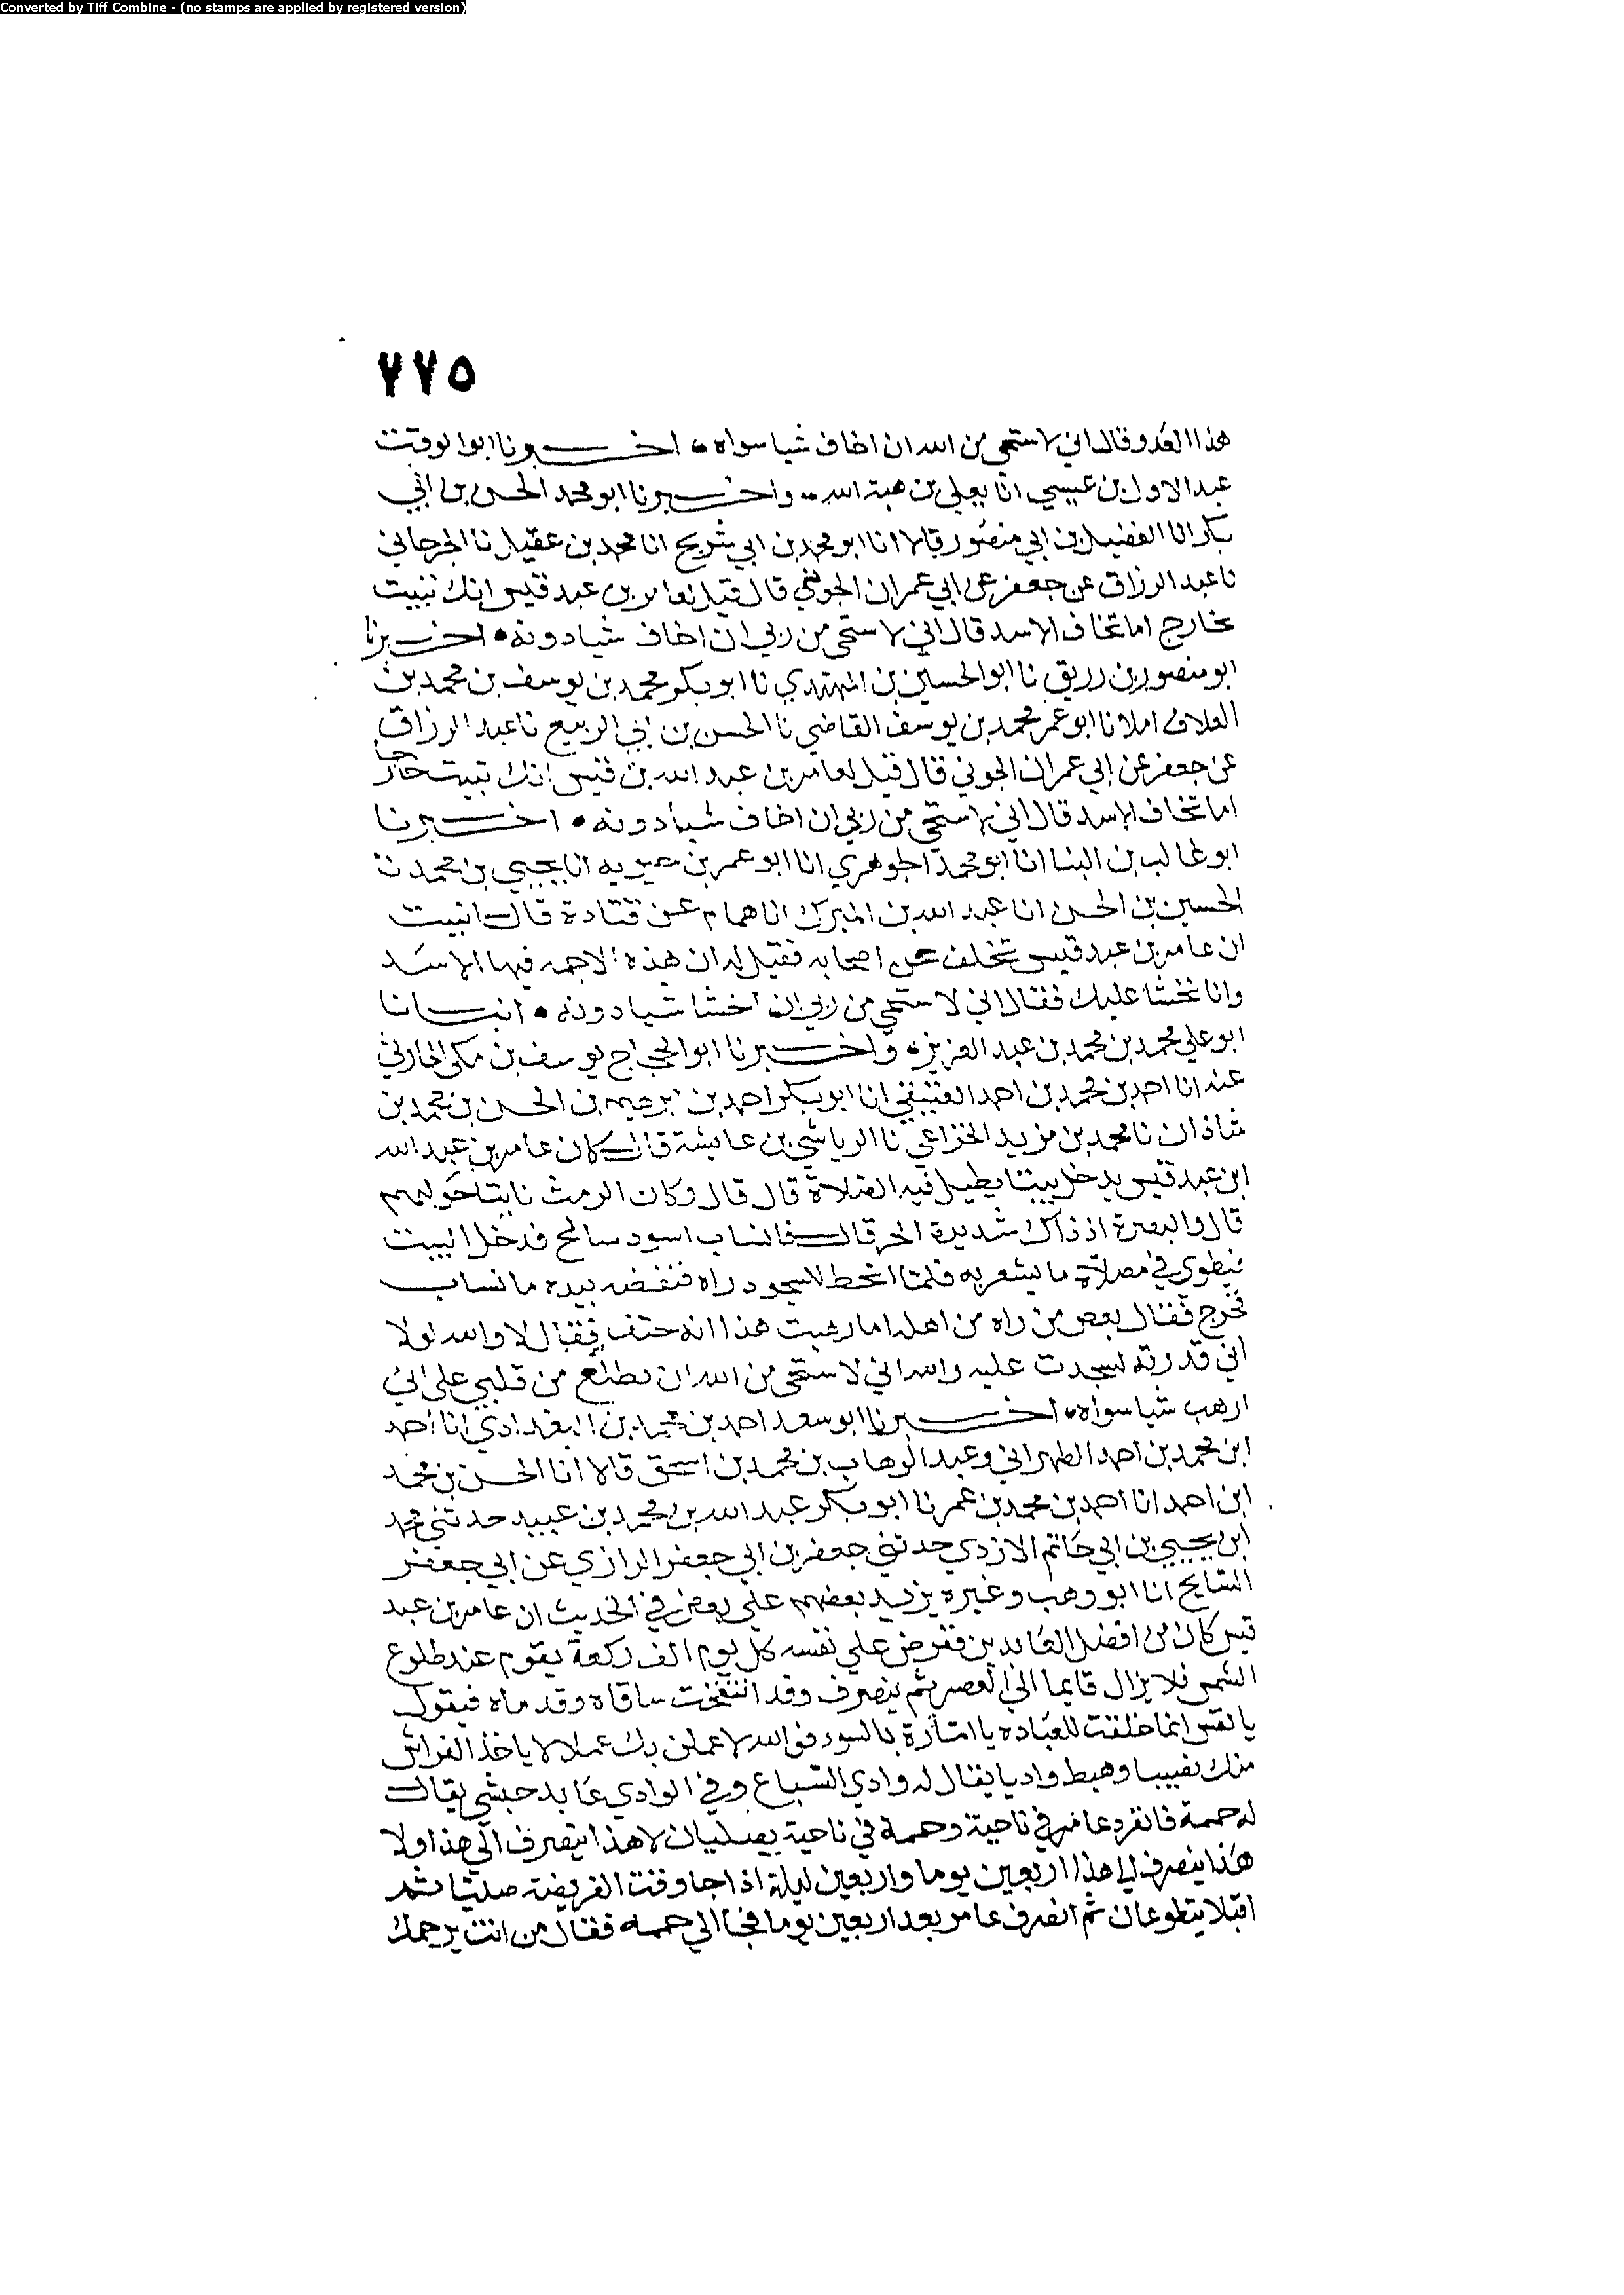 Converted by Tiff Combine - (no stamps are applied by registered version)
٧٧٥
هذا العدو قال اني لاستحي من الله ان اخاف شيا سواه اخبرنا ابو الوقت
عبد الاول بن عيسي انا يعلي بن هبة الله واخبرنا ابو محمد الحسن بن ابي
بكر انا الفضيل بن ابي منصور قالا انا ابو محمد بن ابي شريح انا محمد بن عقيل نا الجرجاني
نا عبد الرزاق عن جعفر عن ابي عمران الجوني قال قيل لعامر بن عبد قيس انك تبيت
خارج اما تخاف الاسد قال اني لاستحي من ربي ان اخاف شيا دونه اخبرنا
ابو منصور بن زريق نا ابو الحسين بن المهتدي نا ابو بكر محمد بن يوسف بن محمد بن
العلاف املا نا ابو عمر محمد بن يوسف القاضي نا الحسن بن ابي الربيع نا عبد الرزاق
عن جعفر عن ابي عمران الجوني قال قيل لعامر بن عبد الله بن قيس انك تبيت خارجا
اما تخاف الاسد قال اني لاستحي من ربي ان اخاف شيا دونه اخبرنا
ابو غالب بن البنا انا ابو محمد الجوهري انا ابو عمر بن حيويه انا يحيي بن محمد نا
الحسين بن الحسن انا عبد الله بن المبرك انا همام عن قتادة قال انبيت
ان عامر بن عبد قيس تخلف عن اصحابه فقيل له ان هذه الاجمه فيها الاسد
وانا نخشا عليك فقال اني لاستحي من ربي ان اخشا شيا دونه انبانا
ابو علي محمد بن محمد بن عبد العزيز واخبرنا ابو الحجاج يوسف بن مكي الحارثي
عنه انا احمد بن محمد بن احمد العتيقي انا ابو بكر احمد بن ابرهيم بن الحسن بن محمد بن
شاذان نا محمد بن مزيد الخزاعي نا الرياشي بن عايشة قال كان عامر بن عبد الله
ابن عبد قيس يدخل بيتا يطيل فيه الصلاة قال قال وكان الرمث نابتا حولهم
قال والبصرة اذ ذاك شديدة الحر قال فانساب اسود سالخ فدخل البيت
فيطوي في مصلاه ما يشعر به فلما انحط للسجود راه فنفضه بيده فانساب
فخرج فقال بعض من راه من اهله اما رهبت هذا انه حتف فقال لا والله لولا
اني قدرته لسجدت عليه والله اني لاستحي من الله ان يطلع من قلبي علي اني
ارهب شيا سواه اخبرنا ابو سعد احمد بن محمد بن البغدادي انا احمد
ابن محمد بن احمد الطهراني وعبد الوهاب بن محمد بن اسحق قالا انا الحسن بن محمد
ابن احمد انا احمد بن محمد بن عمر نا ابو بكر عبد الله بن محمد بن عبيد حدثني محمد
ابن يحيي بن ابي حاتم الازدي حدثني جعفر بن ابي جعفر الرازي عن ابي جعفر
السايح انا ابو وهب وغيره يزيد بعضهم علي بعض في الحديث ان عامر بن عبد
قيس كان من افضل العابدين ففرض علي نفسه كل يوم الف ركعة يقوم عند طلوع
الشمس فلا يزال قايما الي العصر ثم ينصرف وقد انتفخت ساقاه وقدماه فيقول
يا نفس انما خلقت للعباده يا امارة بالسو فوالله لاعملن بك عملا لا ياخذ الفراش
منك نصيبا وهبط واديا يقال له وادي السباع وفي الوادي عابد حبشي يقال
له حممة فانفرد عامر في ناحية وحممة في ناحية يصليان لا هذا ينصرف الي هذا ولا
هذا ينصرف الي هذا اربعين يوما واربعين ليلة اذا جا وقت الفريضة صليا ثم
اقبلا يتطوعان ثم انصرف عامر بعد اربعين يوما فجا الي حممه فقال من انت يرحمك